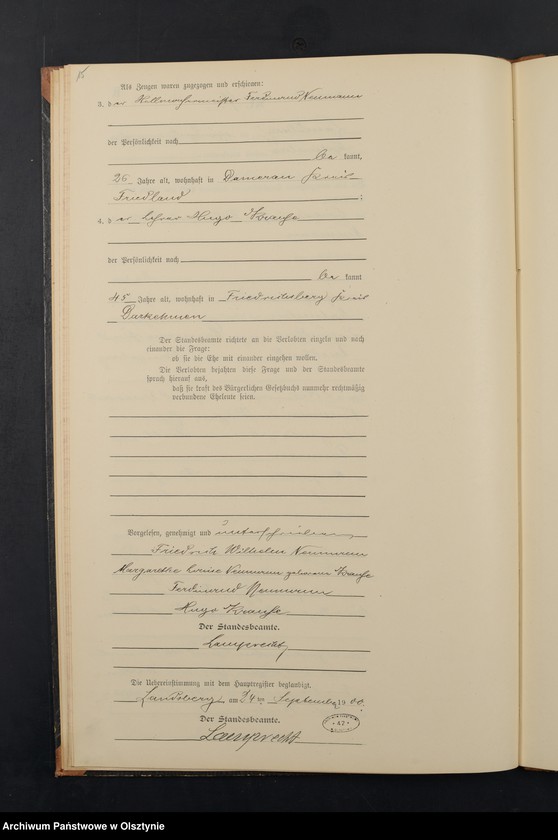 Als Zeugen waren zugezogen und erschienen:
3. der Ferdinand Neumann
der Persönlichkeit nach
be kannt,
26 Jahre alt, wohnhaft in Damerau Kreis
Friedland ;
4. der Lehrer Hugo Krause
der Persönlichkeit nach
be kannt
45 Jahre alt, wohnhaft in Friedrichsberg Kreis
Darkehmen
Der Standesbeamte richtete an die Verlobten einzeln und nach
einander die Frage:
ob sie die Ehe mit einander eingehen wollen.
Die Verlobten bejahten diese Frage und der Standesbeamte
sprach hierauf aus,
daß sie kraft des Bürgerlichen Gesetzbuchs nunmehr rechtmäßig
verbundene Eheleute seien.
Vorgelesen, genehmigt und unterschrieben
Friedrich Wilhelm Neumann
Margarethe Louise Neumann geborene Krause
Ferdinand Neumann
Hugo Krause
Der Standesbeamte.
Lamprecht
Die Uebereinstimmung mit dem Hauptregister beglaubigt.
Landsberg am 24ten September 1900.
Der Standesbeamte.
Lamprecht
47
Archiwum Państwowe w Olsztynie